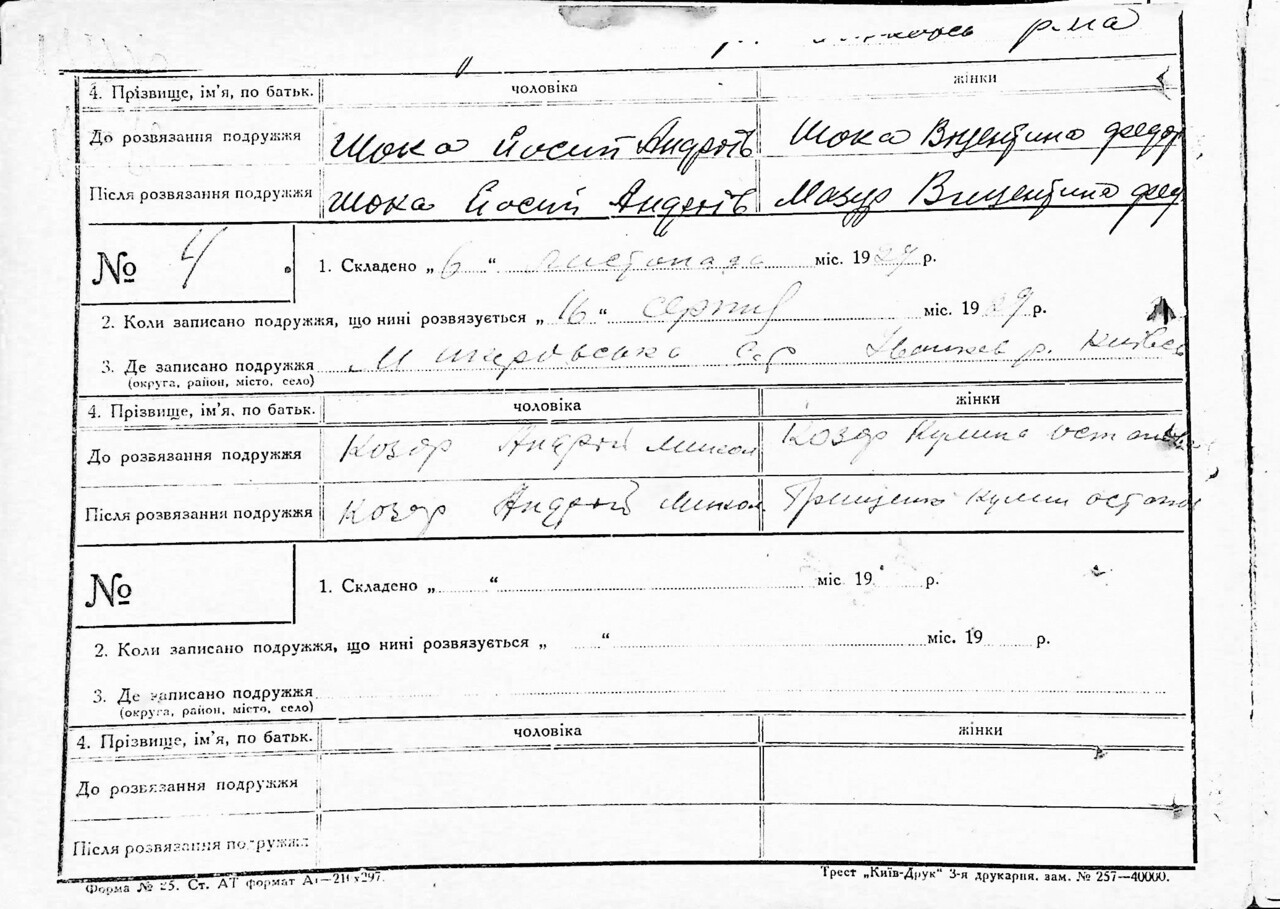 р-на
4. Прізвище, ім'я, по батьк. чоловіка жінки
До розвязання подружжя Шока Йосип Андреїв Шока Вицентина Федор
Після розвязання подружжя Шока Йосип Андреїв Мазур Вицентина Фед
№ 4 1. Складено „ 6 “ листопада міс. 1929 р.
2. Коли записано подружжя, що нині розвязується „ 16 “ серпня міс. 1929 р.
3. Де записано подружжя с/р р. Київсь
(округа, район, місто, село)
4. Прізвище, ім'я, по батьк. чоловіка жінки
До розвязання подружжя Козяр Андрій Микол Козяр Кулина
Після розвязання подружжя Козяр Андрій Микол Грищенко Кулин Остап
№ 1. Складено „ “ міс. 19 р.
2. Коли записано подружжя, що нині розвязується „ “ міс. 19 р.
3. Де записано подружжя
(округа, район, місто, село)
4. Прізвище, ім'я, по батьк. чоловіка жінки
До розвязання подружжя
Після розвязання подружжя
Форма № 25. Ст. АТ формат А1—210х297. Трест „Київ-Друк“ 3-я друкарня. зам. № 257—40000.